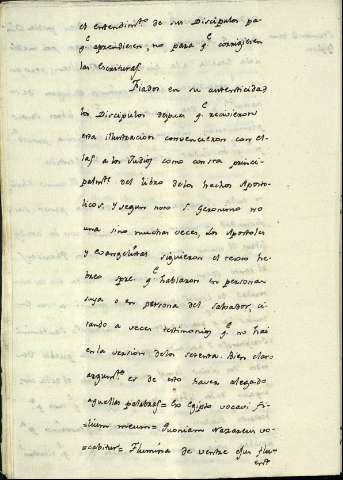 el entendim.to de sus Discipulos pa
q.e aprendiesen, no para q.e corrigiesen
las Escrituras.
Fiados en su autenticidad
los Discipulos despues q.e recivieron
esta ilustracion convencieron con el-
las a los Judios como consta princi-
palm.te del libro de los hechos Aposto-
licos. Y segun noto S. Geronimo no
una sino muchas veces, los Apostoles
y evangelistas siguieron el texto he-
breo spre. q.e hablaron en persona
suya o en persona del Salvador, ci-
tando a veces testimonios q.e no hai
en la version de los setenta. Bien claro
argum.to es de esto haver alegado
aquellas palabras = Ex Egipto vocavi fi-
lium meum = Quoniam Nazareus vo-
cabitur = Flumina de ventre ejus flu-
ent